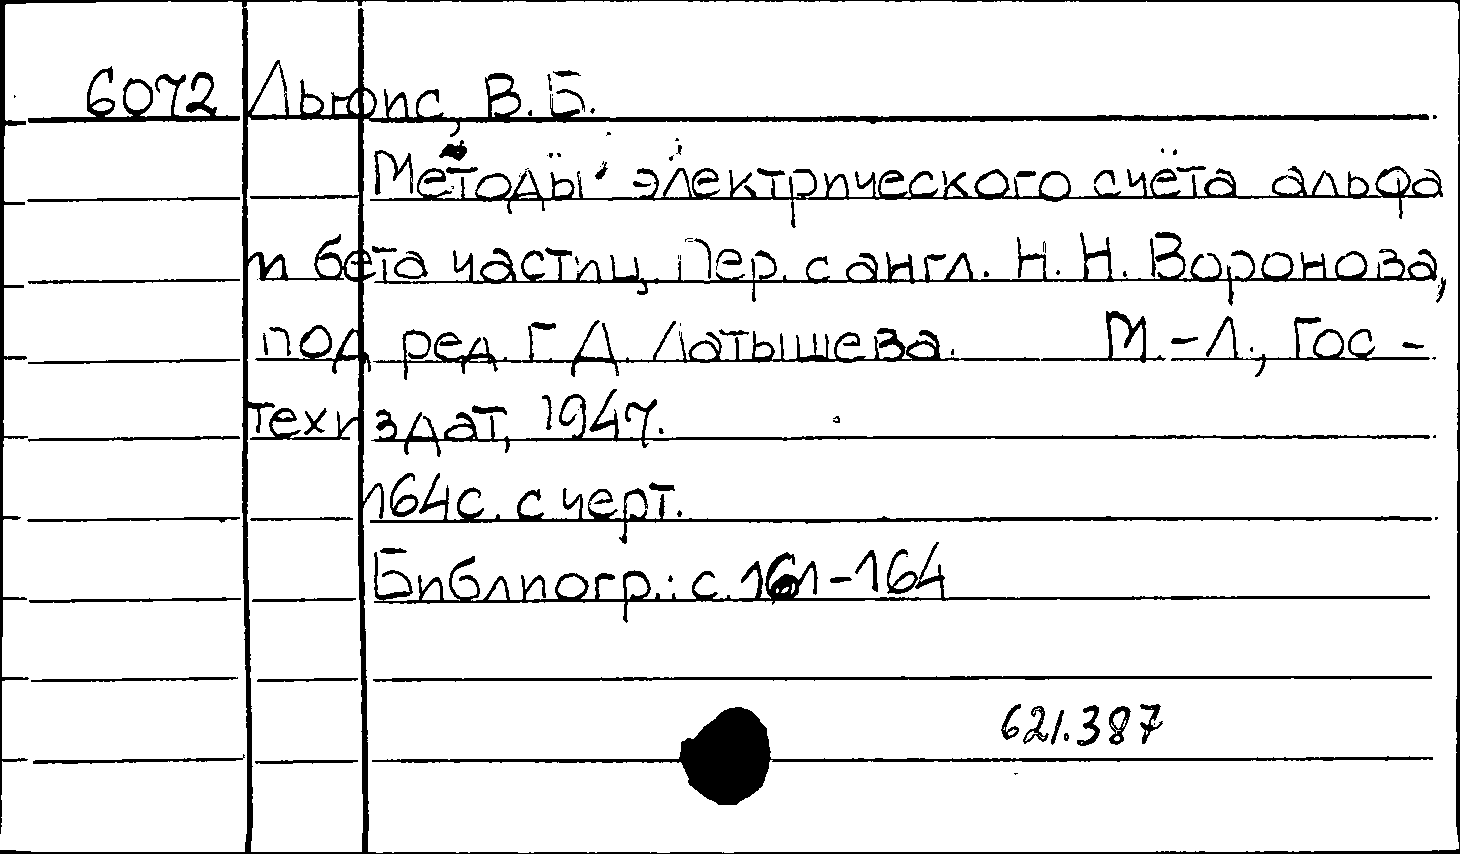 6072 Льюис, В. Б.
Методы электрического счёта альфа
и бета частиц. Пер. с англ. Н. Н. Воронова,
под ред. Г. Д. Латышева. М.-Л., Гос-
техиздат, 1947.
164с. с черт.
Библиогр.: с. 161-164
621.387